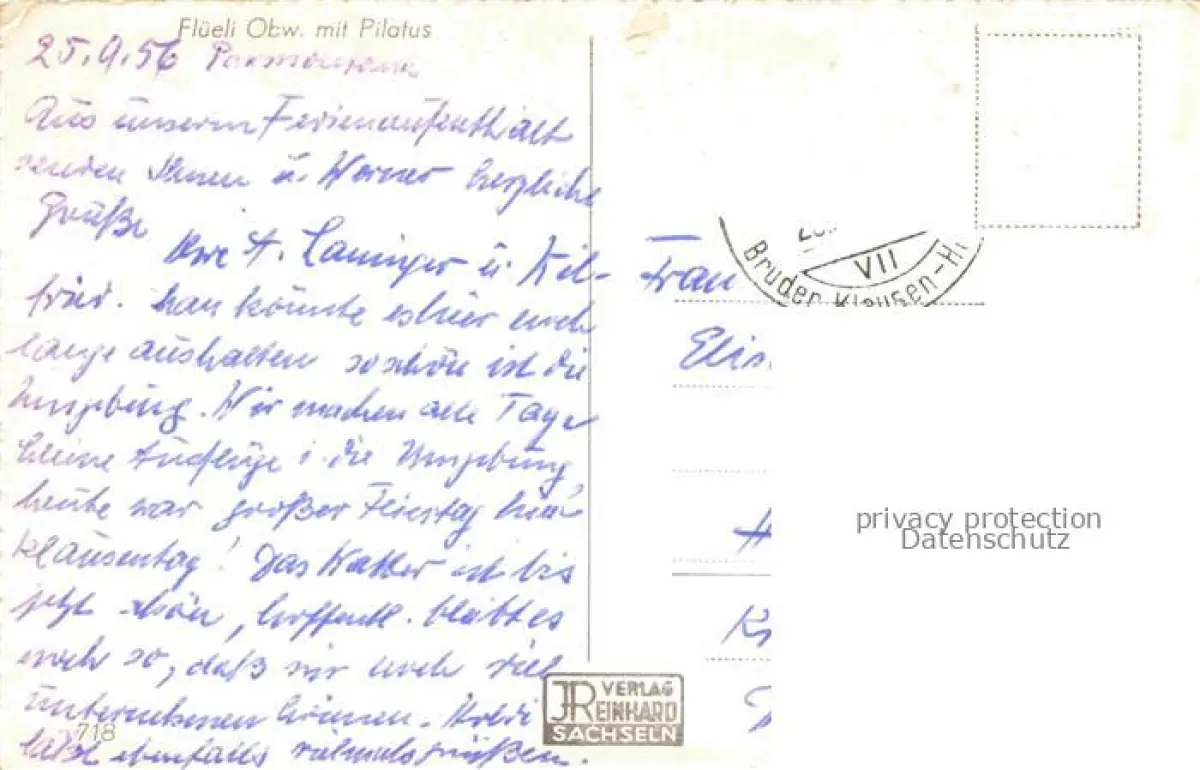 Flüeli Obw. mit Pilatus
25.9.56
Aus unserm Ferienaufenthalt
senden Ihnen u. Werner herzliche
Grüße
Ihre A. u.
man könnte es hier noch
lange aushalten so schön ist die
Umgebung. Wir machen alle Tage
kleine Ausflüge i. die Umgebung,
heute war großer Feiertag hier
Klausentag! Das Wetter ist bis
jetzt schön, hoffentl. bleibt es
noch so, daß wir noch viel
unternehmen können.
läßt ebenfalls vielmals grüßen.
718
JR VERLAG
REINHARD
SACHSELN
VII
Bruder Klausen-H
Frau
Elis
privacy protection
Datenschutz